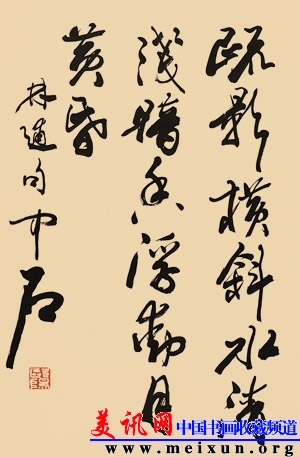 疏影横斜水清
浅暗香浮动月
黄昏
林逋句中石
美讯网 中国书画收藏频道
www.meixun.org